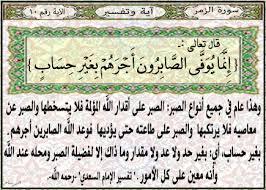 سورة الزمر
آية وتفسير
الآية رقم ١٠
قال تعالى :-
{ إِنَّمَا يُوَفَّى الصَّابِرُونَ أَجْرَهُمْ بِغَيْرِ حِسَابٍ }
وهذا عام في جميع أنواع الصبر: الصبر على أقدار الله المؤلمة فلا يتسخطها والصبر عن
معاصيه فلا يرتكبها والصبر على طاعته حتى يؤديها فوعد الله الصابرين أجرهم
بغير حساب، أي: بغير حد ولا عد ولا مقدار وما ذاك إلا لفضيلة الصبر ومحله عند الله
وأنه معين على كل الأمور. " تفسير الإمام السعدي" -رحمه الله-.